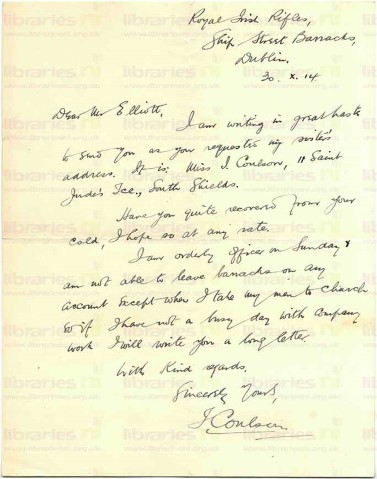 Royal Irish Rifles,
Ship Street Barracks,
Dublin.
30. X. 14
Dear Mr Elliott,
I am writing in great haste
to send you as you requested my sister's
address. It is, Miss I. Coulson, 11 Saint
Jude's Tce., South Shields.
Have you quite recovered from your
cold, I hope so at any rate.
I am orderly Officer on Sunday &
am not able to leave barracks on any
account except when I take my men to church
so if I have not a busy day with company
work I will write you a long letter.
With Kind regards,
Sincerely Yours,
J Coulson